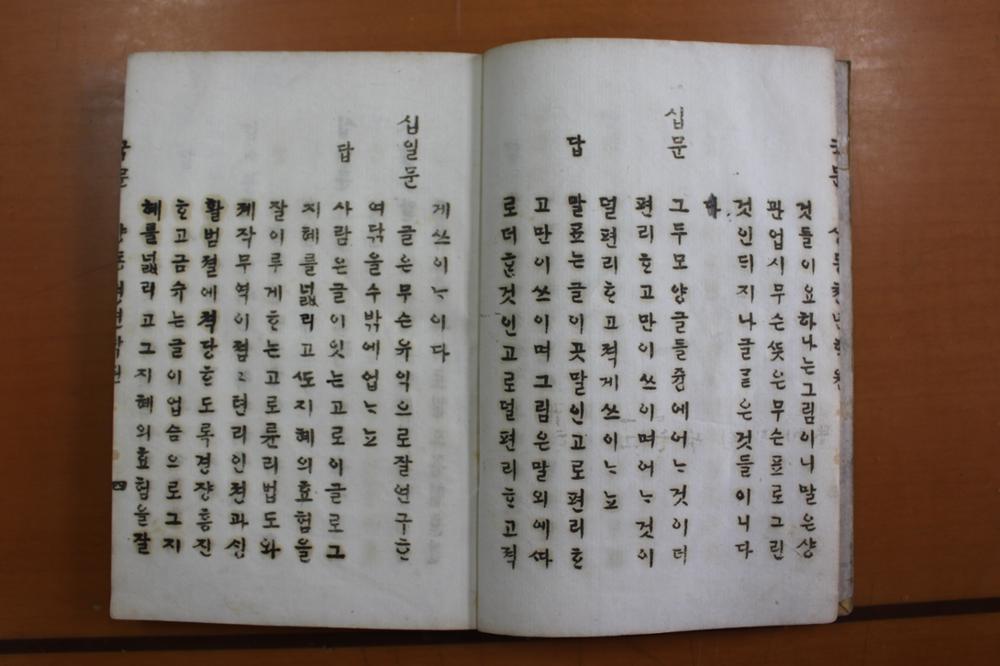 것들이요하나는그림이니말은샹
관업시무슨ᄯᅳᆺ은무슨표로그린
것인ᄃᆡ지나글ᄀᆞᆮ은것들이니다
십문
그두모양글들즁에어ᄂᆞ것이더
편리ᄒᆞ고만이쓰이며어ᄂᆞ것이
덜편리ᄒᆞ고젹게쓰이ᄂᆞ뇨
답
말표는글이곳말인고로편리ᄒᆞ
고만이쓰이며그림은말외에ᄯᅡ
로더ᄒᆞᆫ것인고로덜편리ᄒᆞ고젹
게쓰이ᄂᆞ이다
십일문
글은무슨유익으로잘연구ᄒᆞ
여닦을수밖에업ᄂᆞ뇨
답
사람은글이잇는고로이글로그
지혜를넓리고ᄯᅩ지혜의효험을
잘이루게ᄒᆞ는고로륜리법도와
제작무역이졈ᄎᆞ편리인젼과싱
활범졀에젹당ᄒᆞ도록젼쟝흥진
ᄒᆞ고금슈는글이업슴으로그지
혜를넓리고그지혜의효험을잘
국문